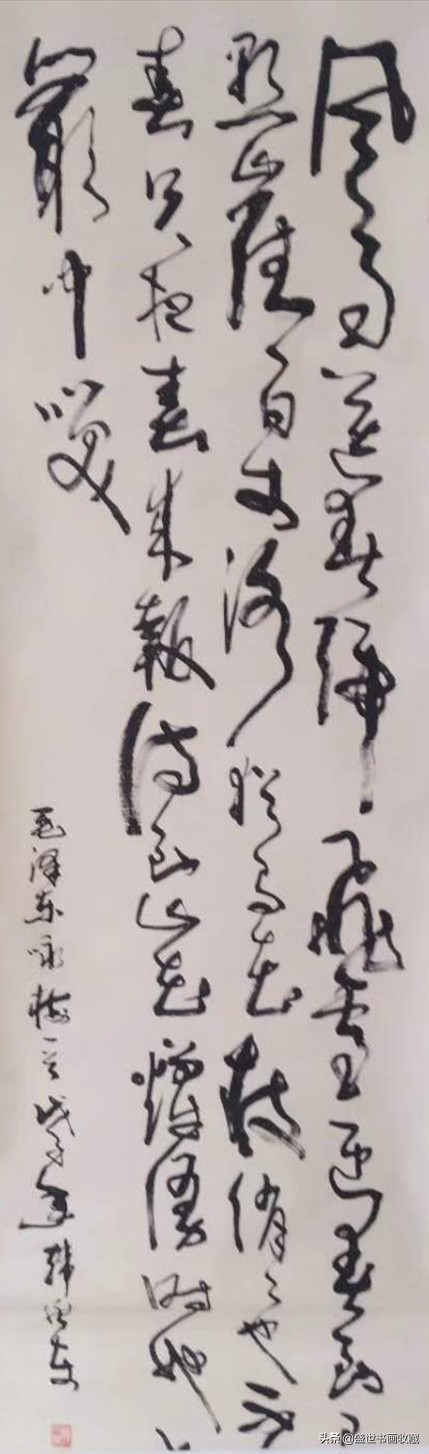 风雨送春归飛雪迎春到
悬崖百丈冰犹有花枝俏々也不
春只把春来报待到山花烂漫时她
丛中笑
毛泽东咏梅 戊子年韩
头条@盛世书画收藏